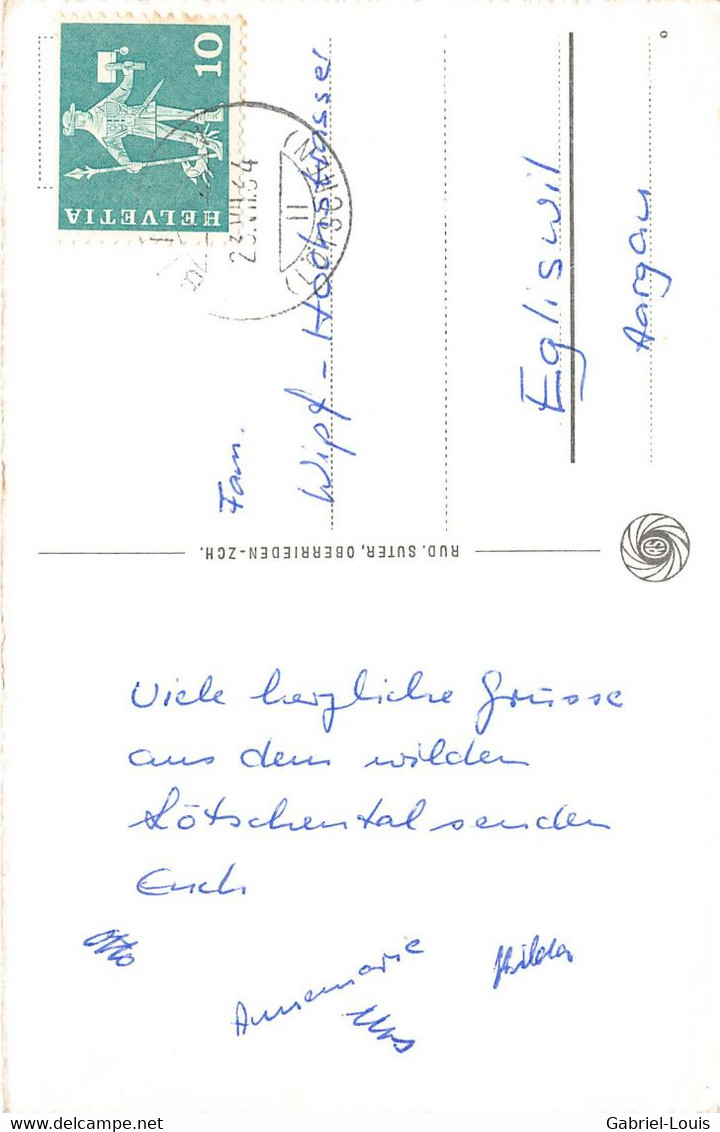 HELVETIA
10
23.VII.64
(LÖTSCHEN)
Fam.
Wipf - Hochstrasser
Egliswil
Aargau
RUD. SUTER, OBERRIEDEN-ZCH.
RS
Viele herzliche Grüsse
aus dem wilden
Lötschental senden
Euch
Otto
Annemarie
Hilda
Urs
Gabriel-Louis